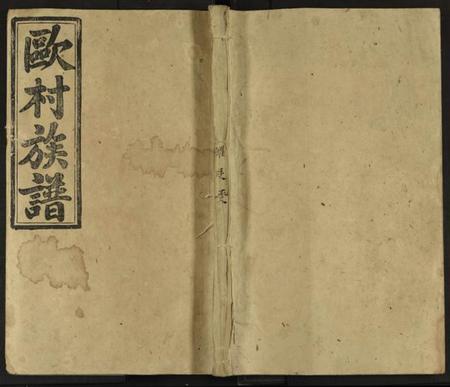 歐村族譜